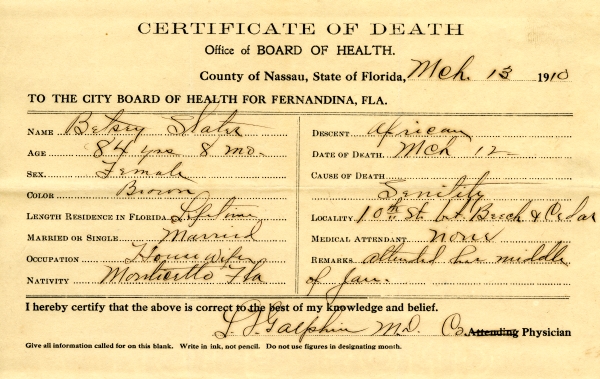 CERTIFICATE OF DEATH
Office of BOARD OF HEALTH.
County of Nassau, State of Florida, Mch. 13 1910
TO THE CITY BOARD OF HEALTH FOR FERNANDINA, FLA.
NAME Betsey Slater
AGE 84 yrs 8 mo.
SEX. Female
COLOR Brown
LENGTH RESIDENCE IN FLORIDA Lifetime
MARRIED OR SINGLE Married
OCCUPATION Housewife
NATIVITY Monticello Fla
DESCENT African
DATE OF DEATH. Mch 12
CAUSE OF DEATH
Senility
LOCALITY 10th St. bt. Beech & Cedar
MEDICAL ATTENDANT None
REMARKS attended her middle
of Jan.
I hereby certify that the above is correct to the best of my knowledge and belief.
Galphin M.D. Co. Attending Physician
Give all information called for on this blank. Write in ink, not pencil. Do not use figures in designating month.